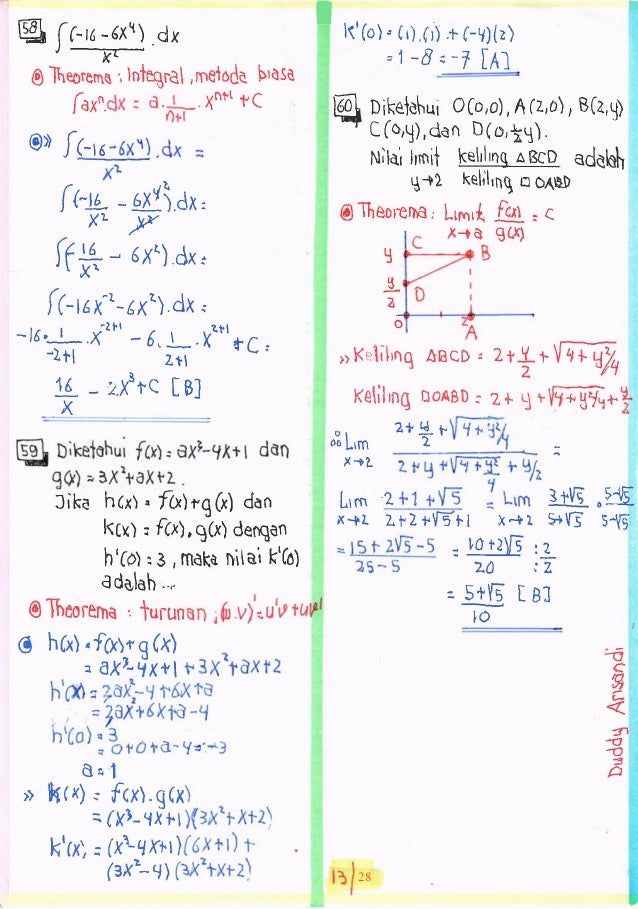 58 ∫ (-16-6x⁴)/x² .dx
◎ Theorema : Integral, metode biasa
∫axⁿ.dx = a. 1/(n+1) . xⁿ⁺¹ + C
◎» ∫ (-16-6x⁴)/x² .dx =
∫(-16/x² - 6x⁴/x²).dx =
∫(-16/x² - 6x²).dx =
∫(-16x⁻² - 6x²).dx =
-16. 1/(-2+1) .x⁻²⁺¹ - 6. 1/(2+1) .x²⁺¹ + C =
16/x - 2x³ + C [B]
59 Diketahui f(x) = ax³-4x+1 dan
g(x) = 3x²+ax+2.
Jika h(x) = f(x)+g(x) dan
k(x) = f(x).g(x) dengan
h'(0) = 3, maka nilai k'(0)
adalah ...
◎ Theorema : turunan ; (u.v)' = u'v + uv'
◎ h(x) = f(x)+g(x)
= ax³-4x+1+3x²+ax+2
h'(x) = 2ax²-4+6x+a
= 2ax²+6x+a-4
h'(0) = 3
= 0+0+a-4 = -3
a = 1
» k(x) = f(x).g(x)
= (x³-4x+1)(3x²+x+2)
k'(x) = (x³-4x+1)(6x+1) +
(3x²-4)(3x²+x+2)
k'(0) = (1).(1) + (-4)(2)
= 1-8 = -7 [A]
60 Diketahui O(0,0), A(2,0), B(2,y)
C(0,y), dan D(0,½y).
Nilai limit keliling △BCD adalah
y→2 keliling □ OABD
◎ Theorema : Limit f(x)/g(x) = C
x→a
y C B
y/2 D
0 2 A
» Keliling △BCD = 2 + y/2 + √4+y²/4
Keliling □OABD = 2 + y + √4+y²/4 + y/2
∴ Lim (2 + y/2 + √4+y²/4)/(2 + y + √4+y²/4 + y/2) =
x→2
Lim (2+1+√5)/(2+2+√5+1) = Lim (3+√5)/(5+√5) . (5-√5)/(5-√5)
x→2 x→2
= (15+2√5-5)/(25-5) = (10+2√5)/20 :2/:2
= (5+√5)/10 [B]
Duddy Arisandi
13/28